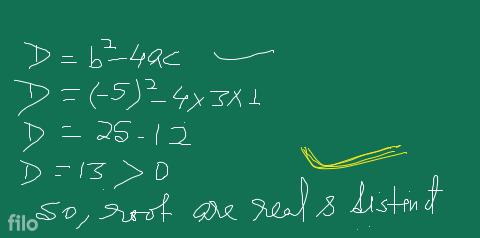 D = b²-4ac
D = (-5)² - 4x3x1
D = 25-12
D = 13 > 0
So, root are real & distinct
filo